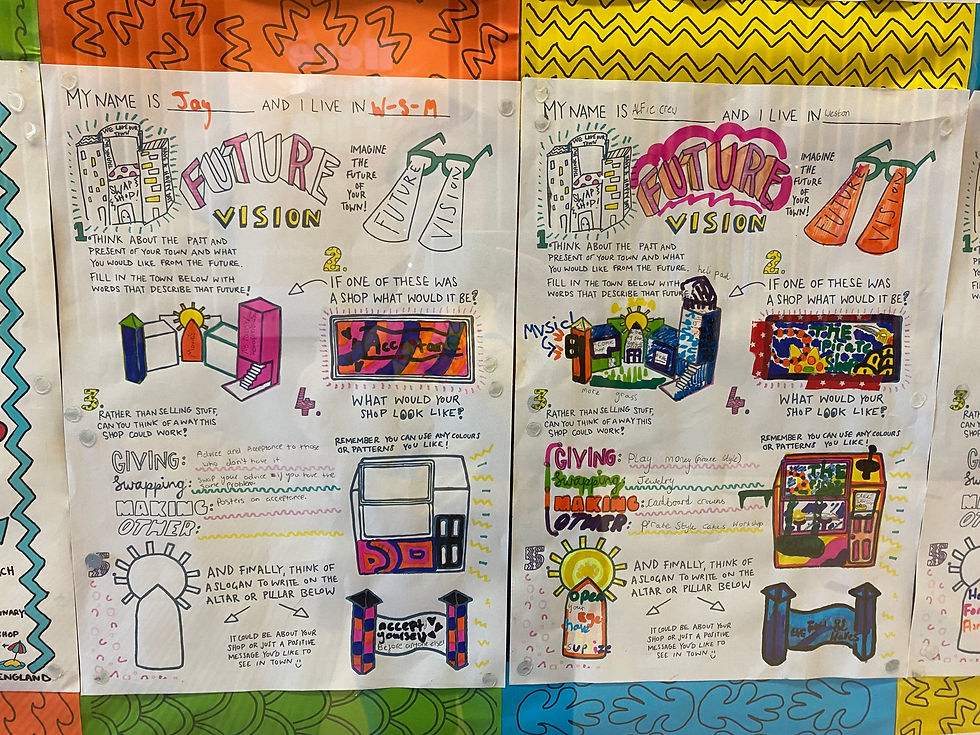 MY NAME IS Jay AND I LIVE IN W-S-M
WE LOVE OUR TOWN
SWAPS SHOP!
FUTURE
VISION
IMAGINE
THE
FUTURE
OF
YOUR
TOWN!
FUTURE
VISION
1. THINK ABOUT THE PAST AND
PRESENT OF YOUR TOWN AND WHAT
YOU WOULD LIKE FROM THE FUTURE.
FILL IN THE TOWN BELOW WITH
WORDS THAT DESCRIBE THAT FUTURE!
2.
IF ONE OF THESE WAS
A SHOP WHAT WOULD IT BE?
3.
RATHER THAN SELLING STUFF,
CAN YOU THINK OF A WAY THIS
SHOP COULD WORK?
4.
WHAT WOULD YOUR
SHOP LOOK LIKE?
REMEMBER YOU CAN USE ANY COLOURS
OR PATTERNS YOU LIKE!
GIVING: Advice and Acceptance to those
who don't have it
Swapping: Swap your advice if you have the
same problem
MAKING: Posters on acceptance.
OTHER:
5.
AND FINALLY, THINK OF
A SLOGAN TO WRITE ON THE
ALTAR OR PILLAR BELOW
IT COULD BE ABOUT YOUR
SHOP OR JUST A POSITIVE
MESSAGE YOU'D LIKE TO
SEE IN TOWN
accept
yourself
Before anyone else!
MY NAME IS Alfie crew AND I LIVE IN weston
WE LOVE OUR TOWN
SWAPS SHOP!
FUTURE
VISION
IMAGINE
THE
FUTURE
OF
YOUR
TOWN!
FUTURE
VISION
1. THINK ABOUT THE PAST AND
PRESENT OF YOUR TOWN AND WHAT
YOU WOULD LIKE FROM THE FUTURE.
FILL IN THE TOWN BELOW WITH
WORDS THAT DESCRIBE THAT FUTURE
heli pad
2.
IF ONE OF THESE WAS
A SHOP WHAT WOULD IT BE?
Music!
more grass
THE
Pirate
3.
RATHER THAN SELLING STUFF,
CAN YOU THINK OF A WAY THIS
SHOP COULD WORK?
4.
WHAT WOULD YOUR
SHOP LOOK LIKE?
REMEMBER YOU CAN USE ANY COLOURS
OR PATTERNS YOU LIKE!
GIVING: Play money (Pirate Style)
Swapping: Jewelry
MAKING: Cardboard crowns
OTHER: Pirate Style Cakes Workshop
THE
5.
AND FINALLY, THINK OF
A SLOGAN TO WRITE ON THE
ALTAR OR PILLAR BELOW
open
your
IT COULD BE ABOUT YOUR
SHOP OR JUST A POSITIVE
MESSAGE YOU'D LIKE TO
SEE IN TOWN
SHOP
ENGLAND
3.
5.